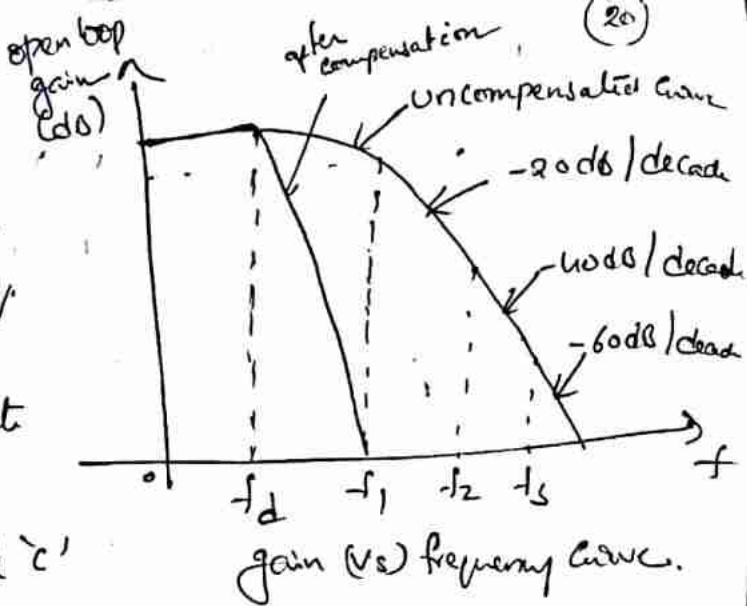 (20)
open loop
gain
(dB)
after
compensation
uncompensated curve
-20dB/decade
-40dB/decade
-60dB/decade
0
fd
f1
f2
f3
f
'c'
gain (Vs) frequency curve.